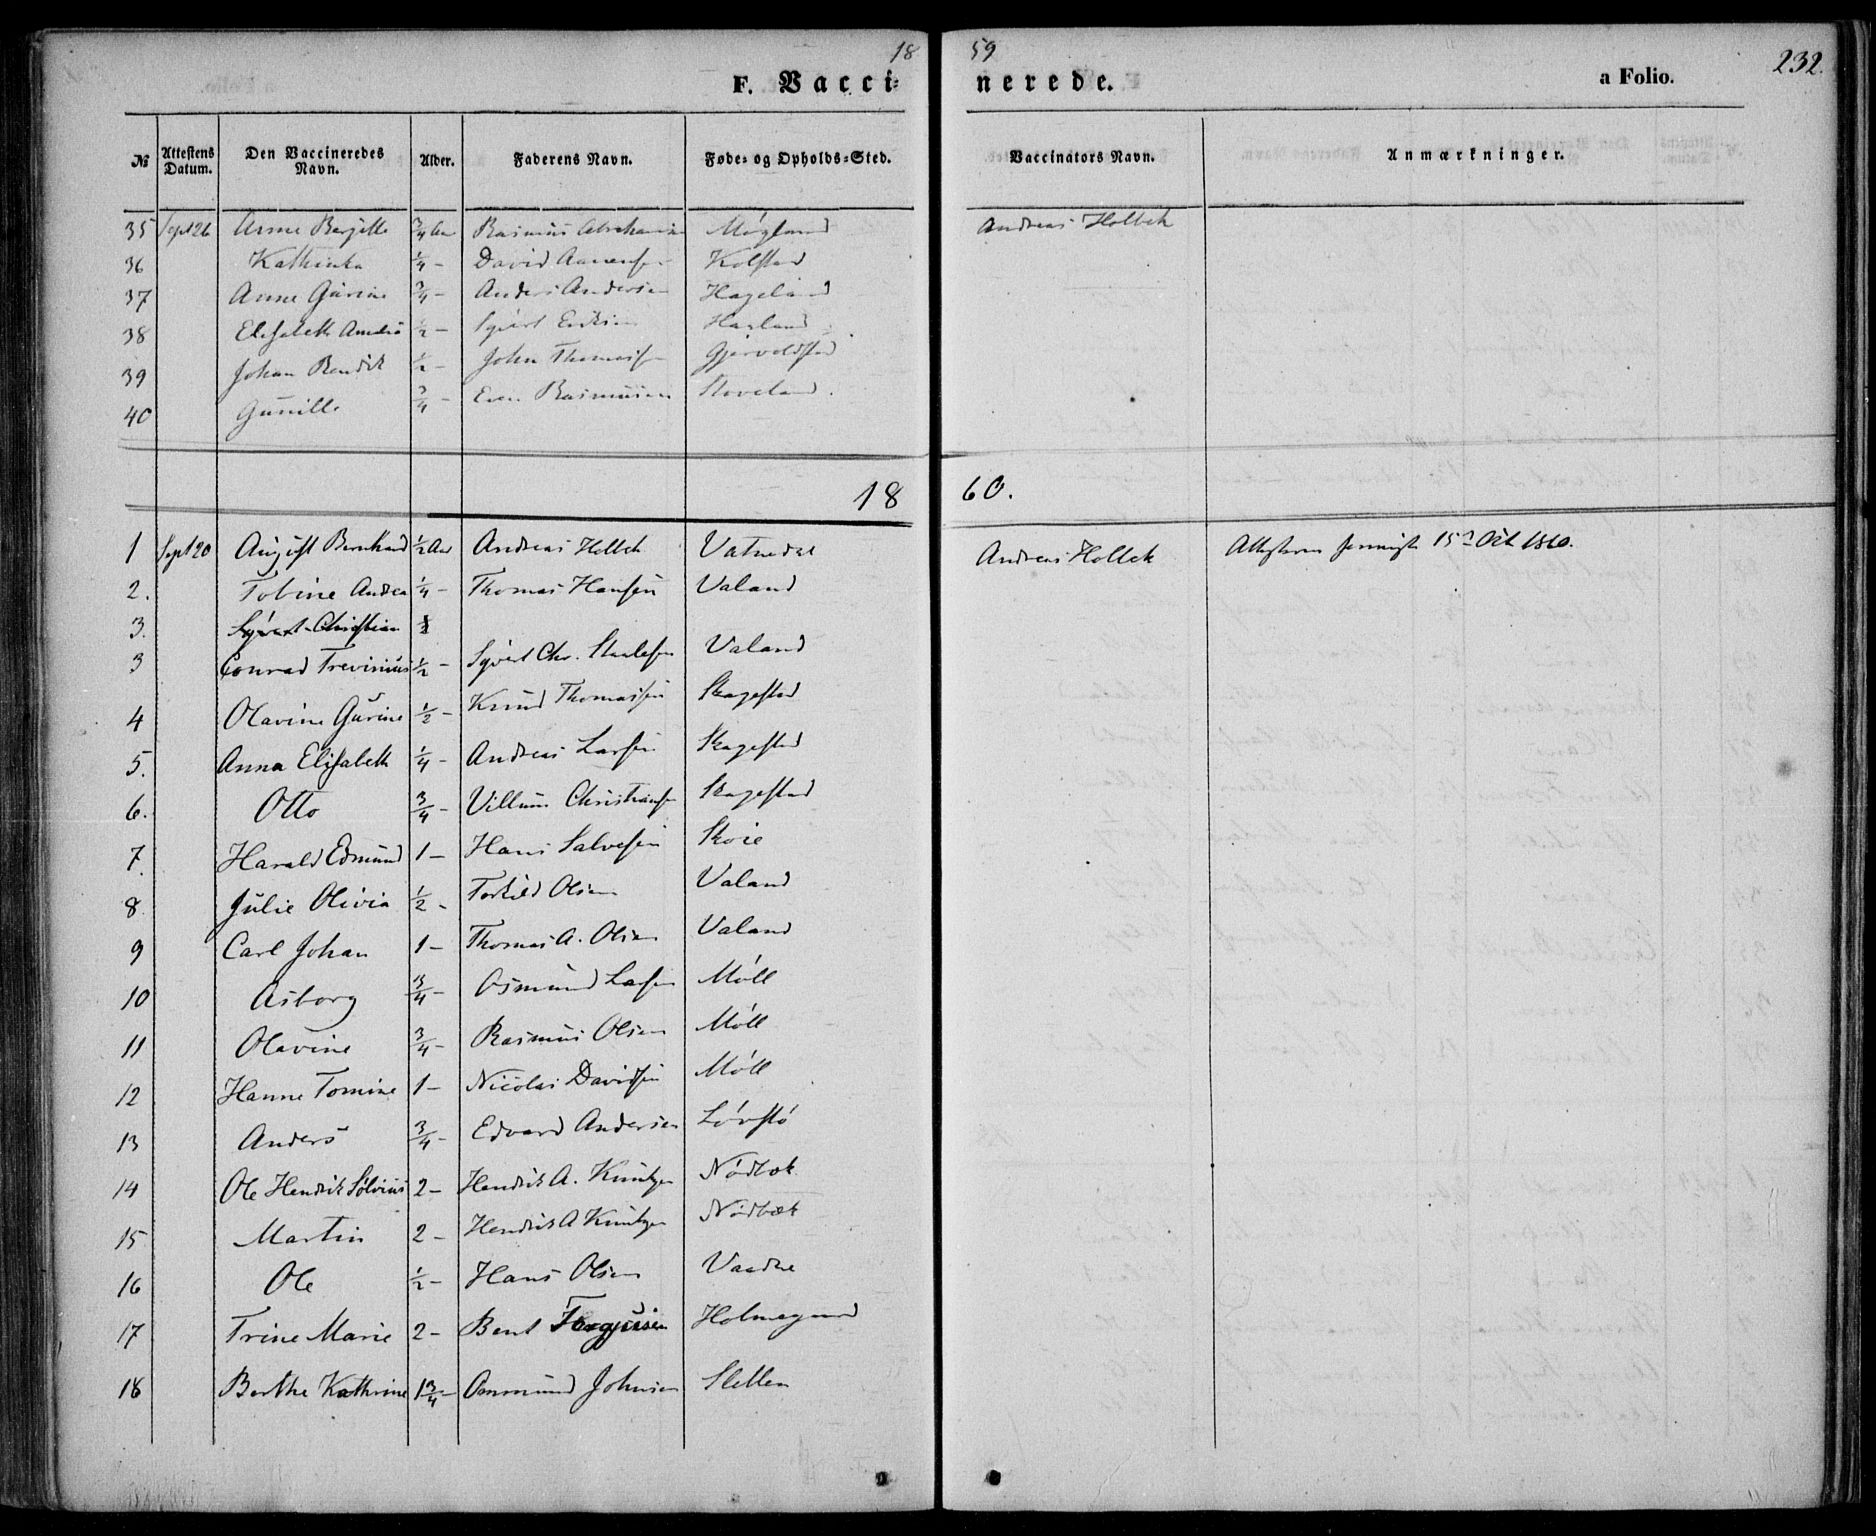 18 59
232.
F. Vacci- nerede. a Folio.
№ Attestens Datum. Den Vaccineredes Navn. Alder. Faderens Navn. Føde- og Opholds-Sted. Vaccinators Navn. Anmærkninger.
35 Sept 26 Anne Bergitte 3/4 Aar Rasmus Møgland Andreas Holbek
36 Kathinka 1/4 - David Aanensen Kolstad
37 Anne Gurine 3/4 - Anders Andersen Hageland
38 Elisabeth 1/2 - Syvert Eriksen Haaland
39 Johan Bendik 1/2 - John Thomassen Gjervoldstad
40 Gunille 3/4 - Even Rasmussen Stoveland.
18 60.
1 Sept 20 August Bernhard 1/2 Aar Andreas Holbek Vatnedal Andreas Holbek 15de Oct 1860.
2. Tobine Andrea 1/4 - Thomas Hansen Valand
3. Syvert Christian 1/2
3 Conrad Trevinius 1/2 - Syvert Chr. Staalesen Valand
4 Olavine Gurine 1/2 - Knud Thomassen Skagestad
5. Anna Elisabeth 1/4 - Andreas Larsen Skagestad
6. Otto 3/4 - Villum Christiansen Skagestad
7. Harald Edmund 1 - Hans Salvesen Skoie
8. Julie Olivia 1/2 - Torkild Olsen Valand
9 Carl Johan 1 - Thomas A. Olsen Valand
10 Asborg 3/4 - Osmund Larsen Møll
11 Olavine 3/4 - Rasmus Olsen Møll
12 Hanne Tomine 1 - Nicolai Davidsen Møll
13 Anders 3/4 - Edvard Andersen Løvstø
14 Ole Hendrik Sølvius 2 - Hendrik A. Knutzen Nødbæk
15 Martin 2 - Hendrik A Knutzen Nødbæk
16 Ole 1/2 - Hans Olsen Vaadne
17 Trine Marie 2 - Bent Torgjusen Holmegaard
18 Berthe Kathrine 1 3/4 - Ommund Johnsen Sletten